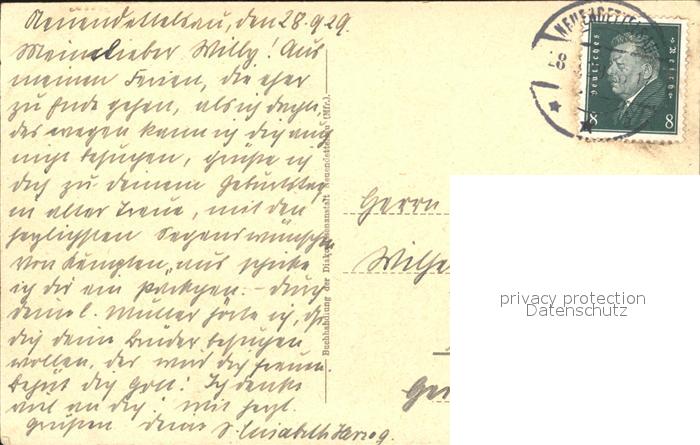 Neuendettelsau, den 28.9.29.
Mein lieber Willy! Aus
meinen Ferien, die eher
zu Ende gehen, als ich dachte,
deswegen kann ich dich auch
nicht besuchen, grüße ich
dich zu deinem Geburtstag
in alter Treue, mit den
herzlichsten Segenswünschen
von Kempten aus schicke
ich dir ein Päckchen. – Durch
deine l. Mutter hörte ich, daß
dich deine Brüder besuchen
wollen, das wird dich freuen.
Behüt dich Gott! Ich denke
viel an dich! Mit herzl.
Grüßen deine S. Elisabeth Herzog.
Buchhandlung der Diakonissenanstalt Neuendettelsau (Mfr.)
NEUENDETTELS
28
Deutsches Reich
8 8
Herrn
Wilhe
privacy protection
Datenschutz